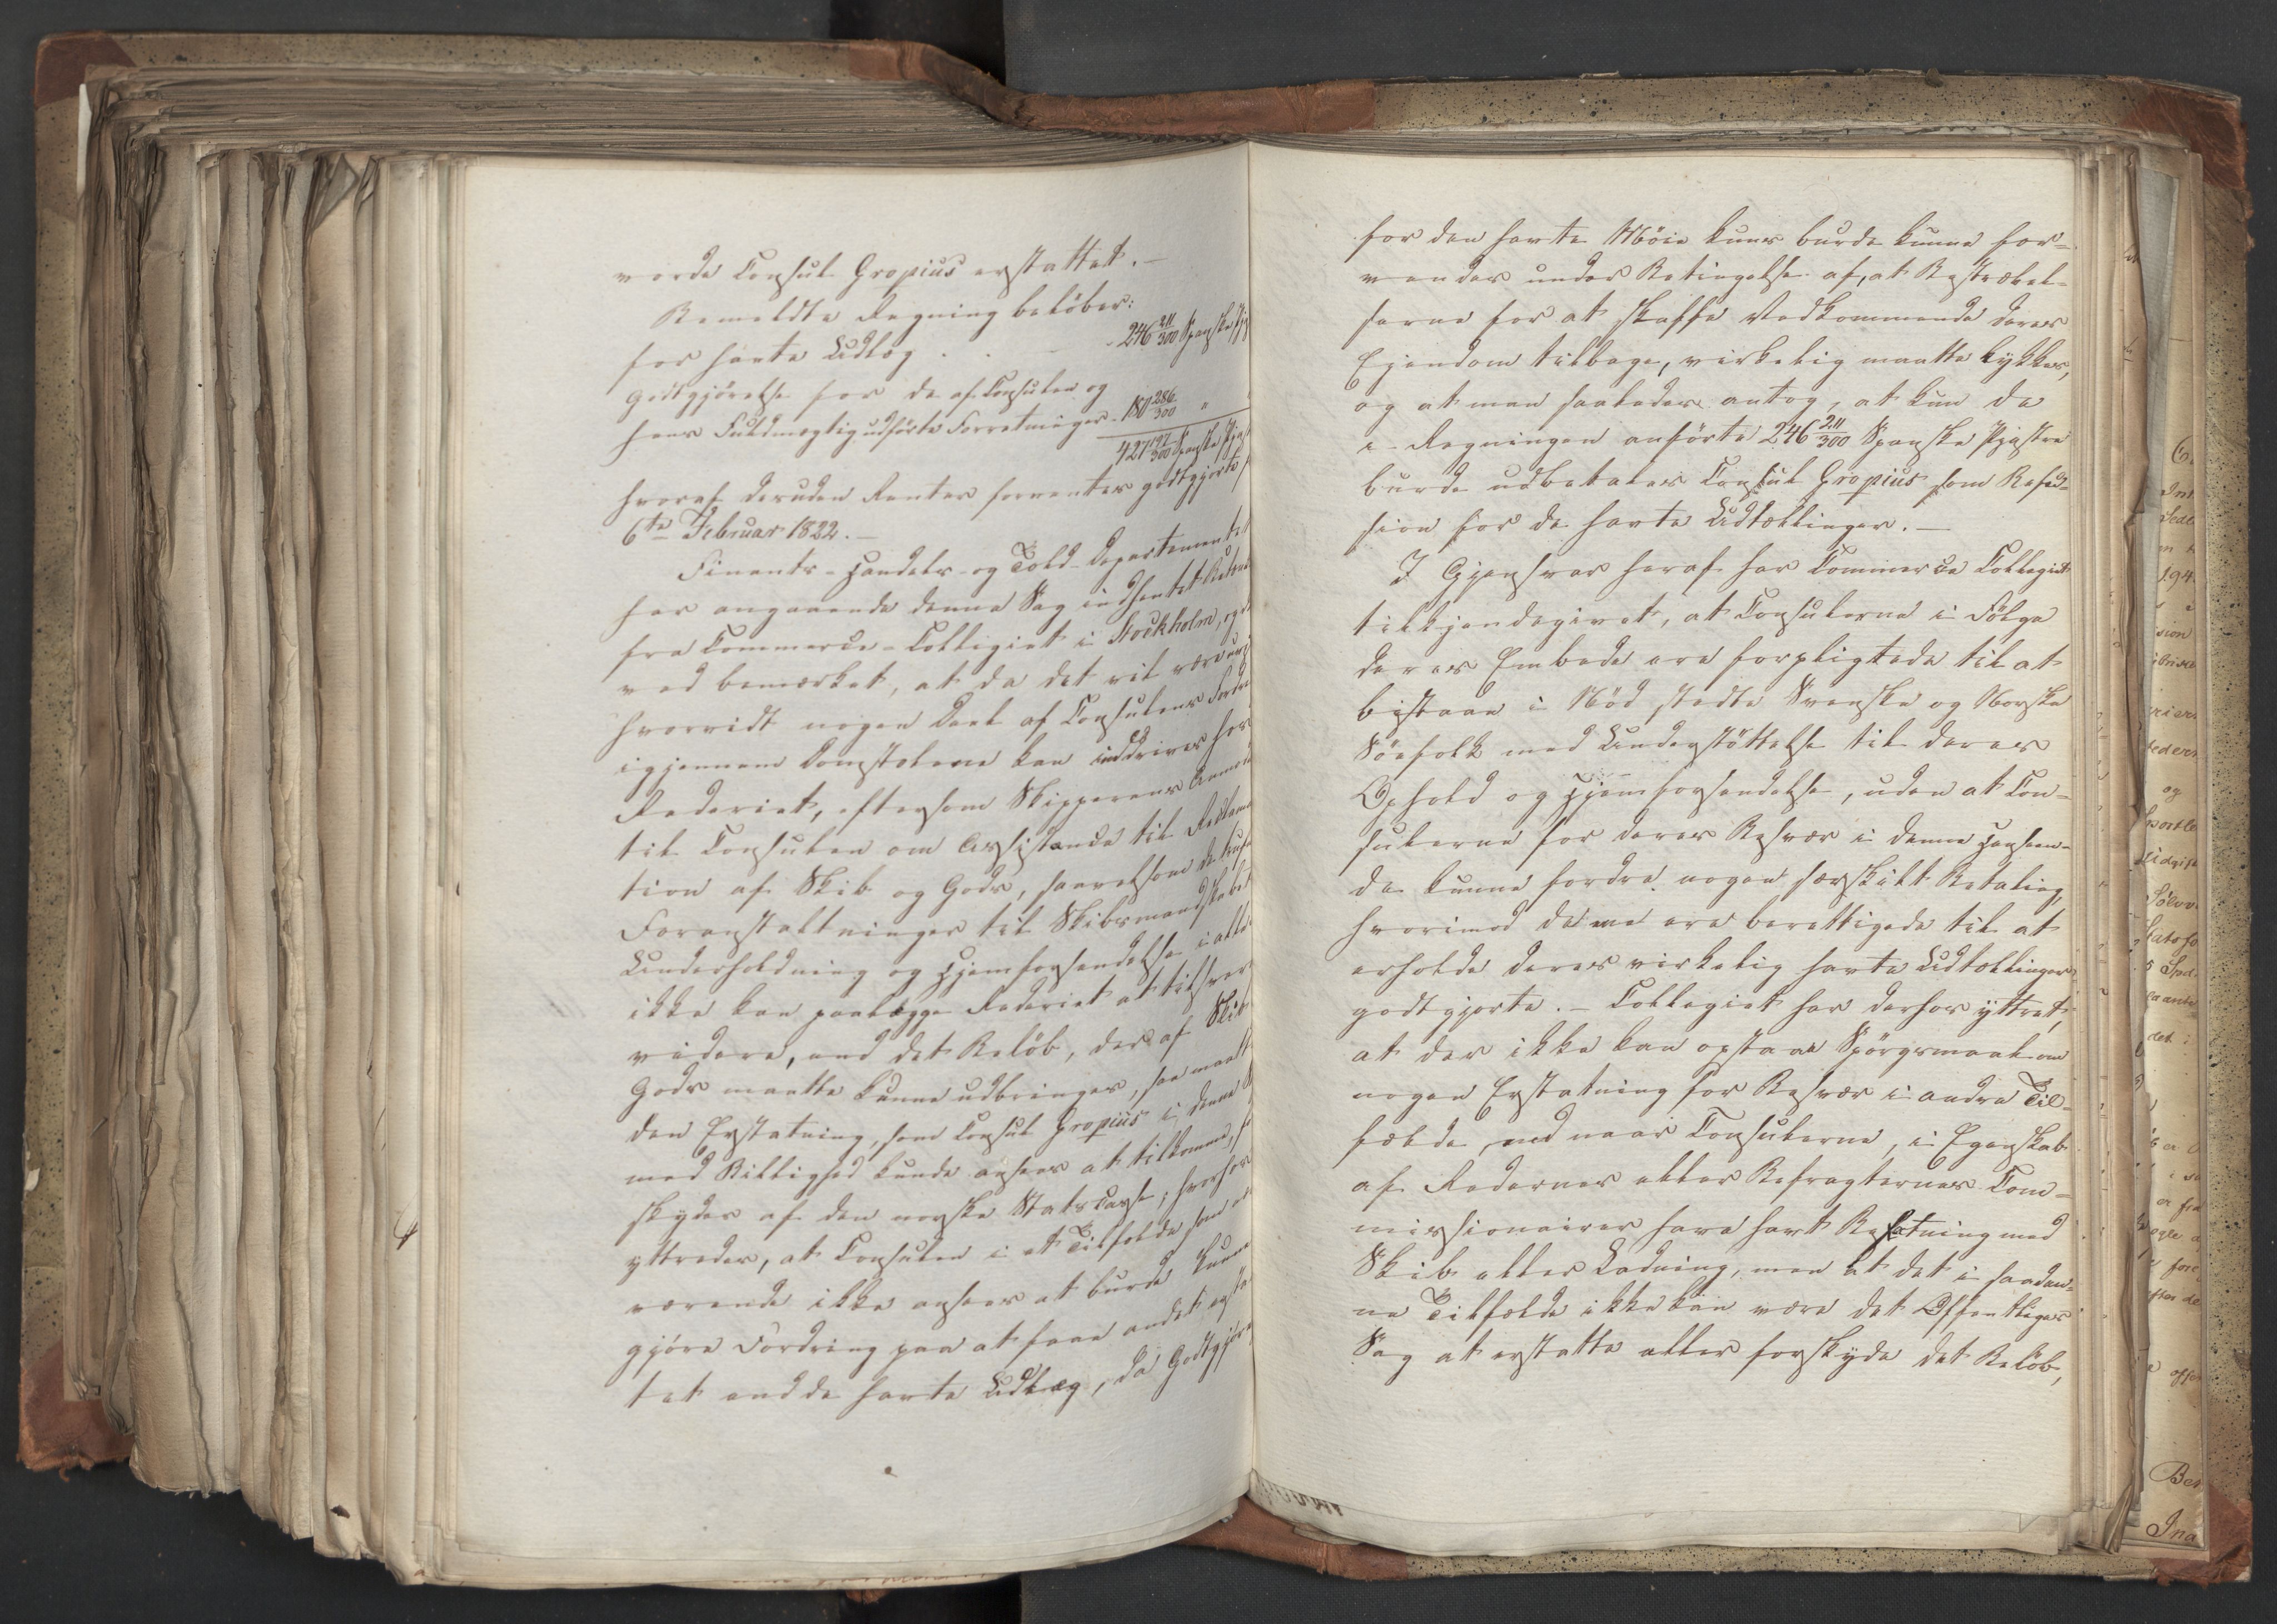 vorde Consul Gropius erstattet.–
Bemeldte Regning beløber:
for havte Udlæg . . - 246 211/300 Spanske Pj
Godtgjørelse for de af Consulen og
hans Fuldmægtig udførte Forretninger - 180 286/300 "
427 197/300 Spanske Pjast
hvoraf desuden Renter forventes godtgjorte f
6te Februar 1822.–
Finants- Handels- og Told-Departementet
har angaaende denne Sag indhentet
fra Commerce-Collegiet i Stockholm, og
ved bemærket, at da det vil være
hvorvidt nogen Deel af Consulens Fordr
igjennem Domstolene kan inddrives hos
Rederiet, eftersom Skipperens Anmod
til Consulen om Assistance til Reclama
tion af Skib og Gods, saavelsom de trufn
Foranstaltninger til Skibsmandskabet
Underholdning og Hjemforsendelse i alle
ikke kan paalægge Rederiet at tilsvare
videre, end det Beløb, der af Skib
Gods maatte kunne udbringes, saa maatt
den Erstatning, som Consul Gropius i denne S
med Billighed kunde ansees at tilkomme, f
skydes af den norske Statscasse; hvorhos
yttredes, at Consulen i et Tilfælde som
værende ikke ansees at burde kunne
gjøre Fordring paa at faae andet ersta
tet end de havte Udlæg, da Godtgjøre
for den havte Møie kuns burde kunne for-
ventes under Betingelse af, at Bestræbel-
serne for at skaffe Vedkommende deres
Ejendom tilbage, virkelig maatte lykkes,
og at man saaledes antog, at kun de
i Regningen anførte 246 211/300 Spanske Pjastre
burde udbetales Consul Gropius som Refu-
sion for de havte Udtællinger.–
I Gjensvar heraf har Commerce Collegiet
tilkjendegivet, at Consulerne i Følge
deres Embede ere forpligtede til at
bistaae i Nød stedte Svenske og Norske
Søefolk med Understøttelse til deres
Ophold og Hjemforsendelse, uden at Con-
sulerne for deres Besvær i denne Henseen-
de kunne fordre nogen særskilt Betaling,
hvorimod de ere berettigede til at
erholde deres virkelig havte Udtællinger
godtgjorte.– Collegiet har derhos yttret,
at der ikke kan opstaae Spørgsmaal om
nogen Erstatning for Besvær i andre Til-
fælde, end naar Consulerne, i Egenskab
af Redernes eller Befragternes Com-
missionairer have havt Befatning med
Skib eller Ladning, men at det i saadan-
ne Tilfælde ikke kan være det Offentliges
Sag at erstatte eller forskyde det Beløb,